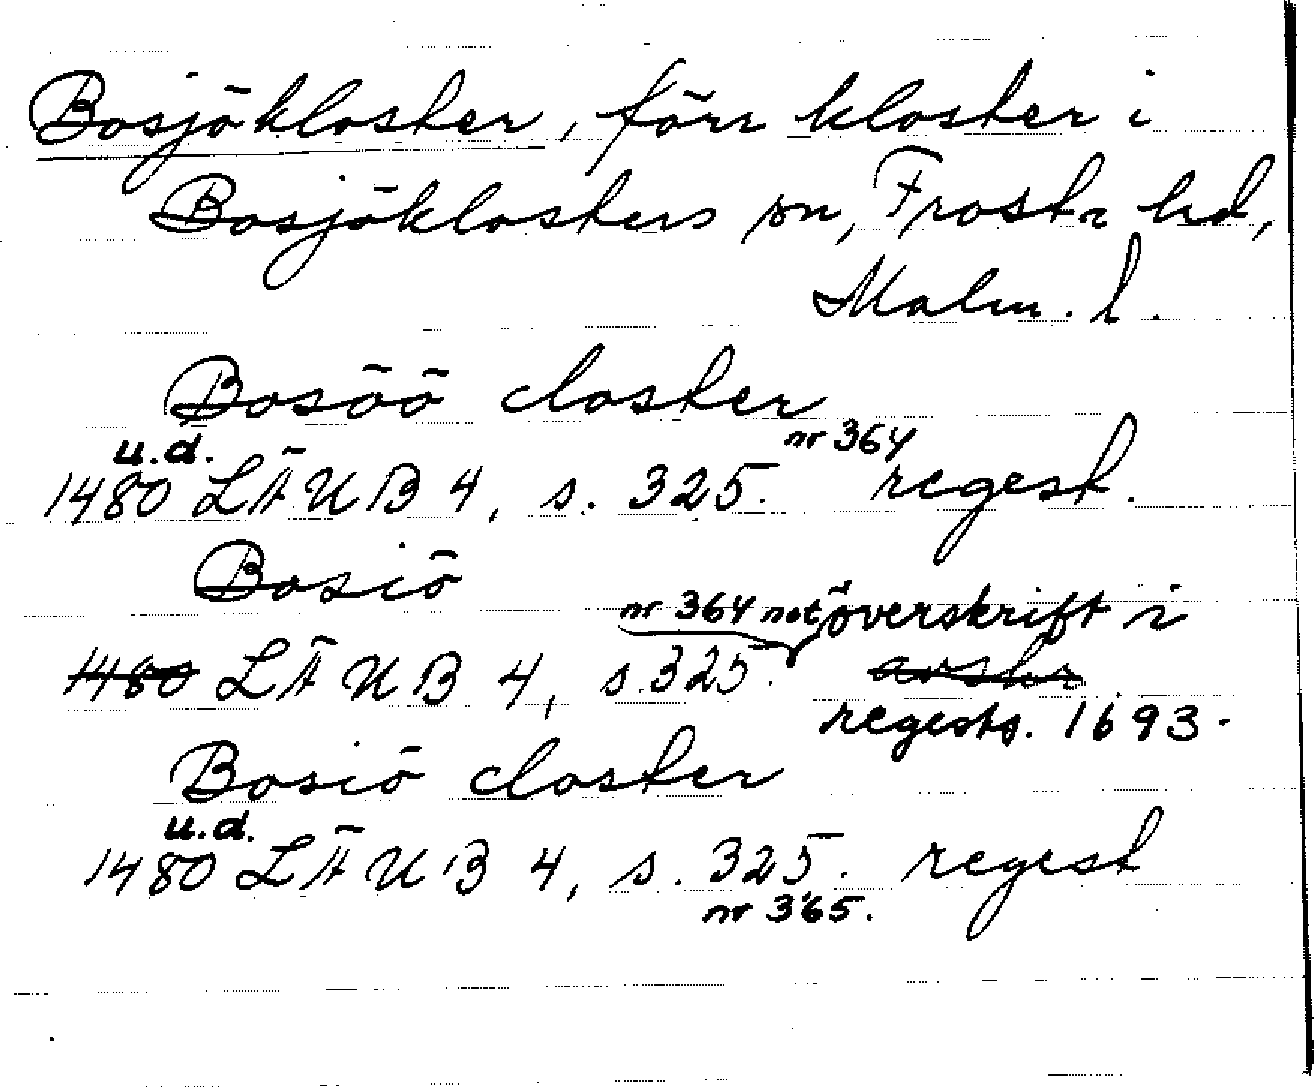 Bosjökloster, förr kloster i
Bosjöklosters sn, Frosta hd,
Malm. l.
Bosöö closter
u.d. nr 364
1480 LÄUB 4, s. 325. regest.
Bosiö
nr 364 not överskrift i
1480 LÄUB 4, s. 325. avskr
regests. 1693.
Bosiö closter
u.d.
1480 LÄUB 4, s. 325. regest
nr 365.